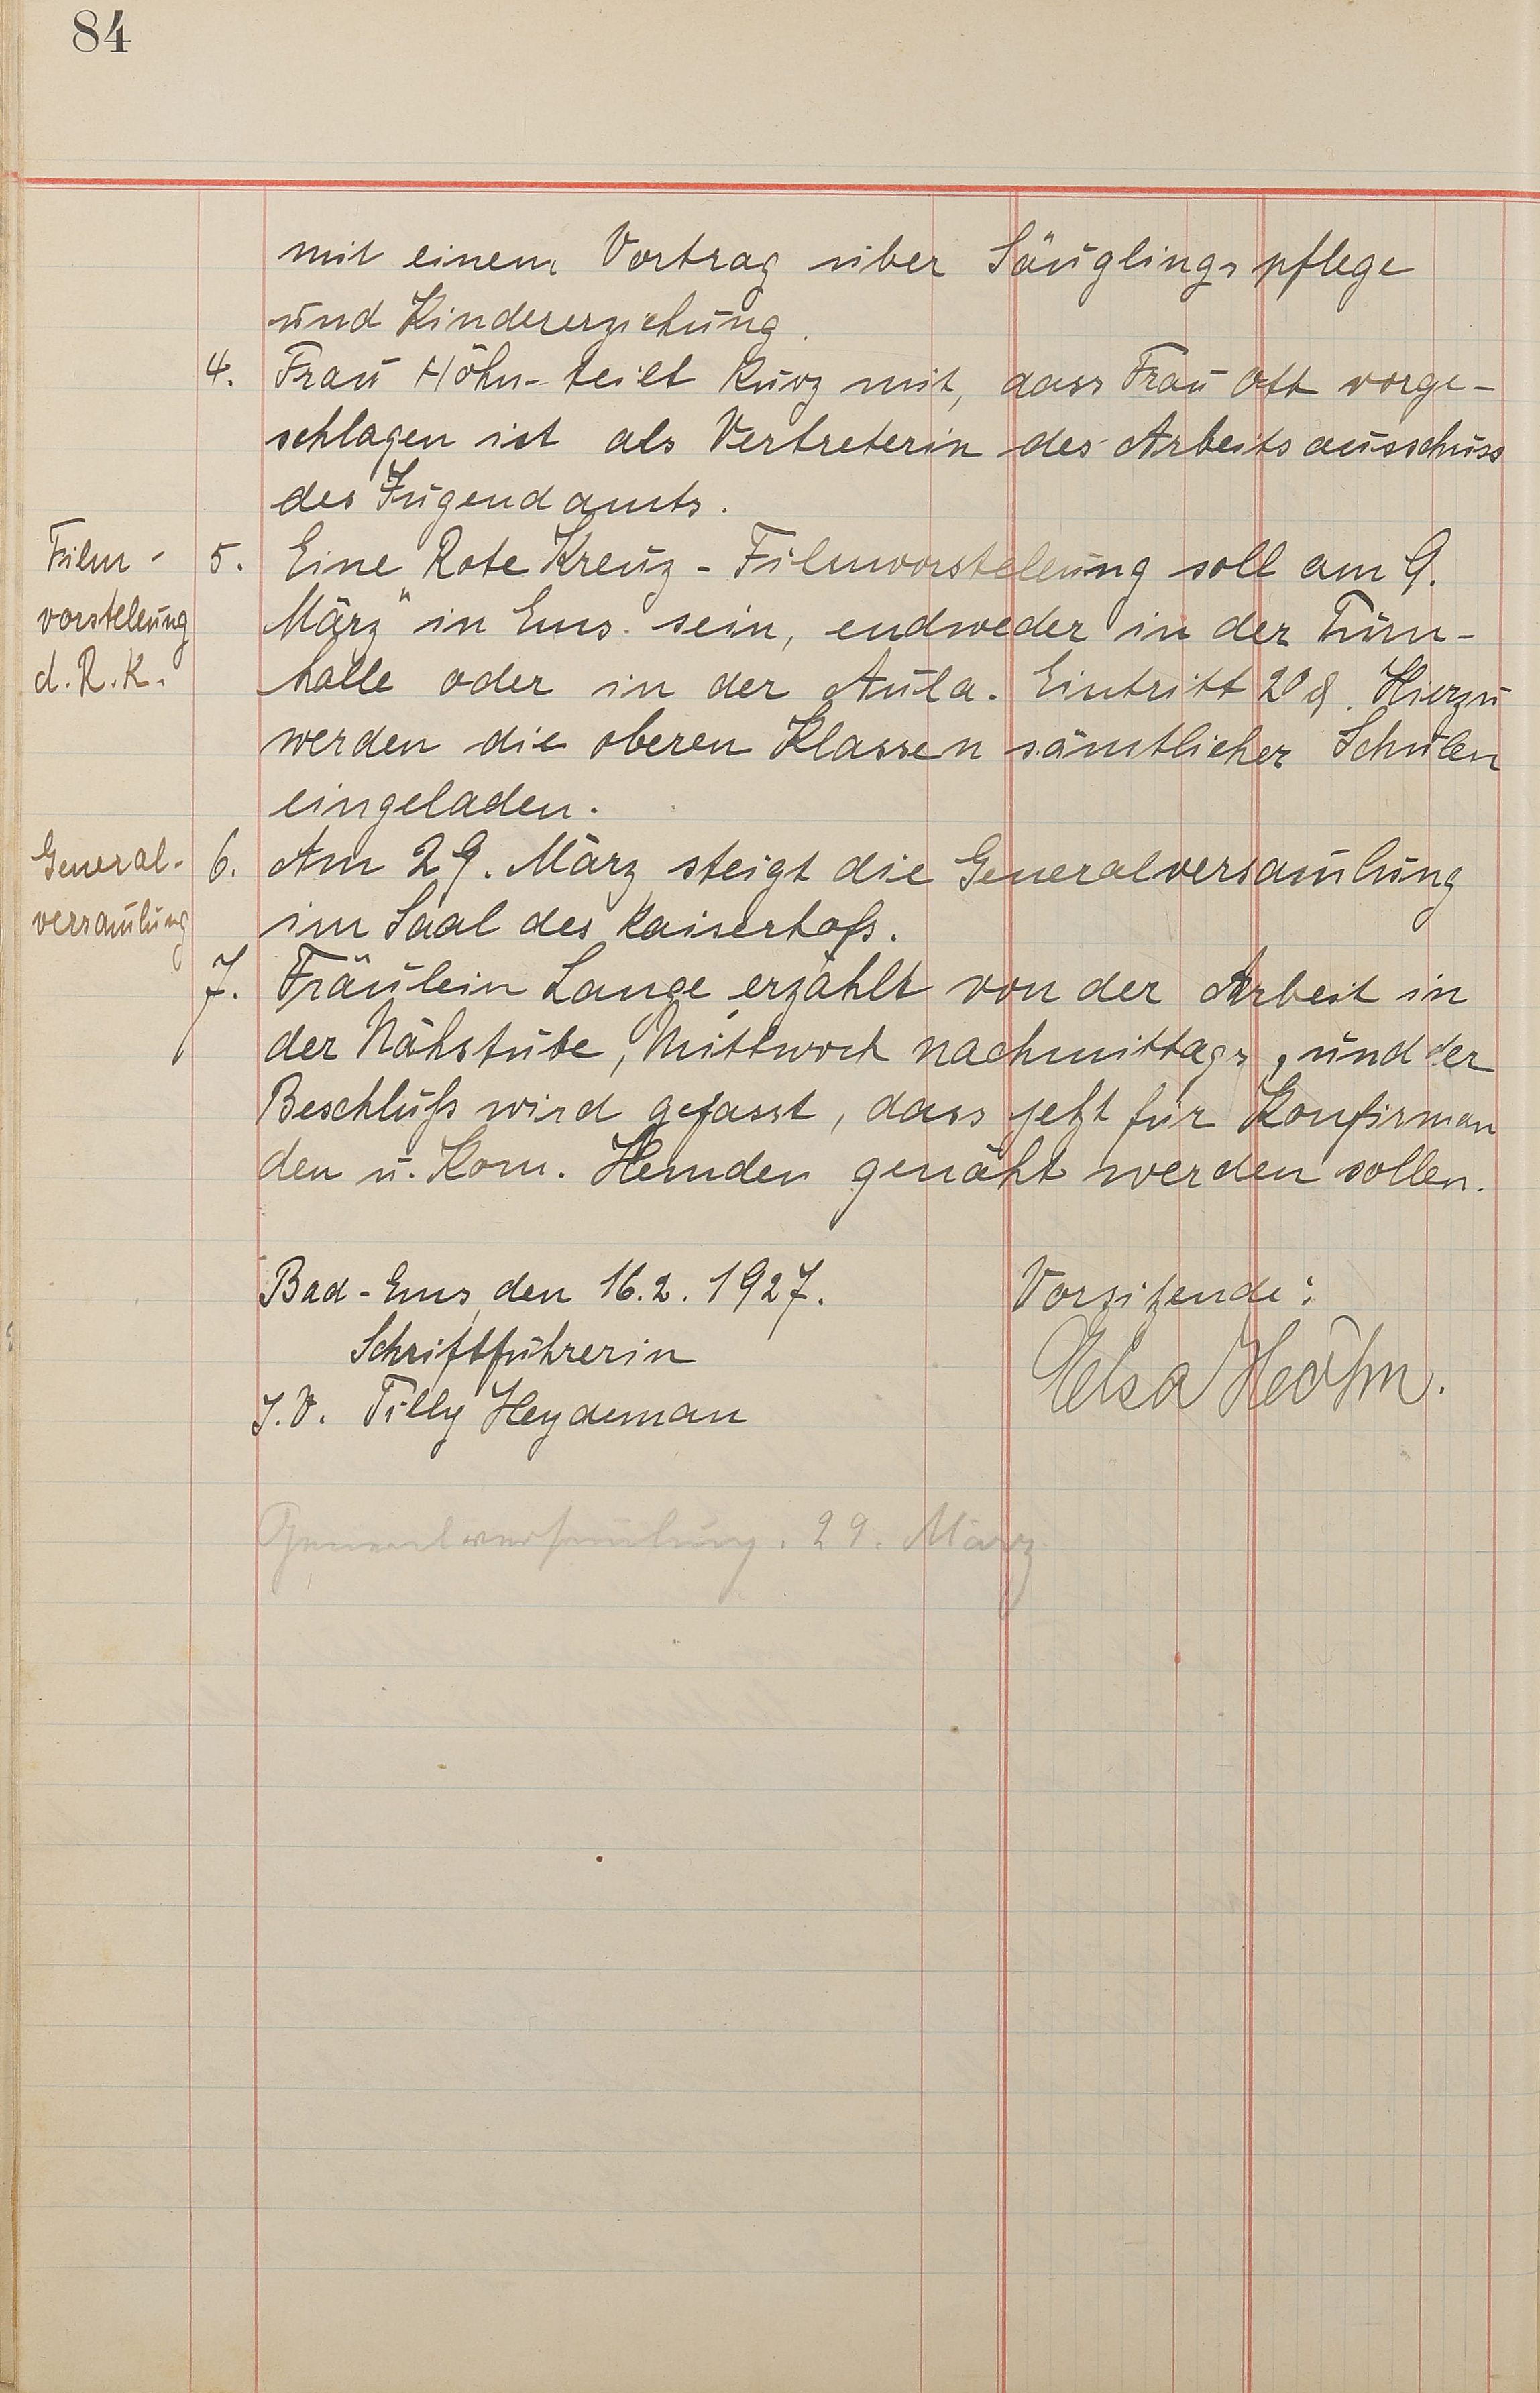 84
mit einem Vortrag über Säuglingspflege
und Kindererziehung.
4. Frau Höhn-teilt kurz mit, dass Frau Ott vorge-
schlagen ist als Vertreterin des Arbeitsausschuss
des Jugendamts.
Film-
vorstellung
d. R. K.
5. Eine Rote Kreuz-Filmvorstellung soll am 9.
März in Ems sein, endweder in der Turn-
halle oder in der Aula. Eintritt 20 ₰. Hierzu
werden die oberen Klassen sämtlicher Schulen
eingeladen.
General-
versam̄lung
6. Am 29. März steigt die Generalversam̄lung
im Saal des Kaiserhofs.
7. Fräulein Lange erzählt von der Arbeit in
der Nähstube, Mittwoch nachmittags, und der
Beschluß wird gefasst, dass jetzt für Konfirman
den u. Kom. Hemden genäht werden sollen.
Bad-Ems, den 16.2.1927.
Vorsitzende:
Schriftführerin
Elsa Höhn.
J.V. Tilly Heydeman
Generalversam̄lung. 29. März